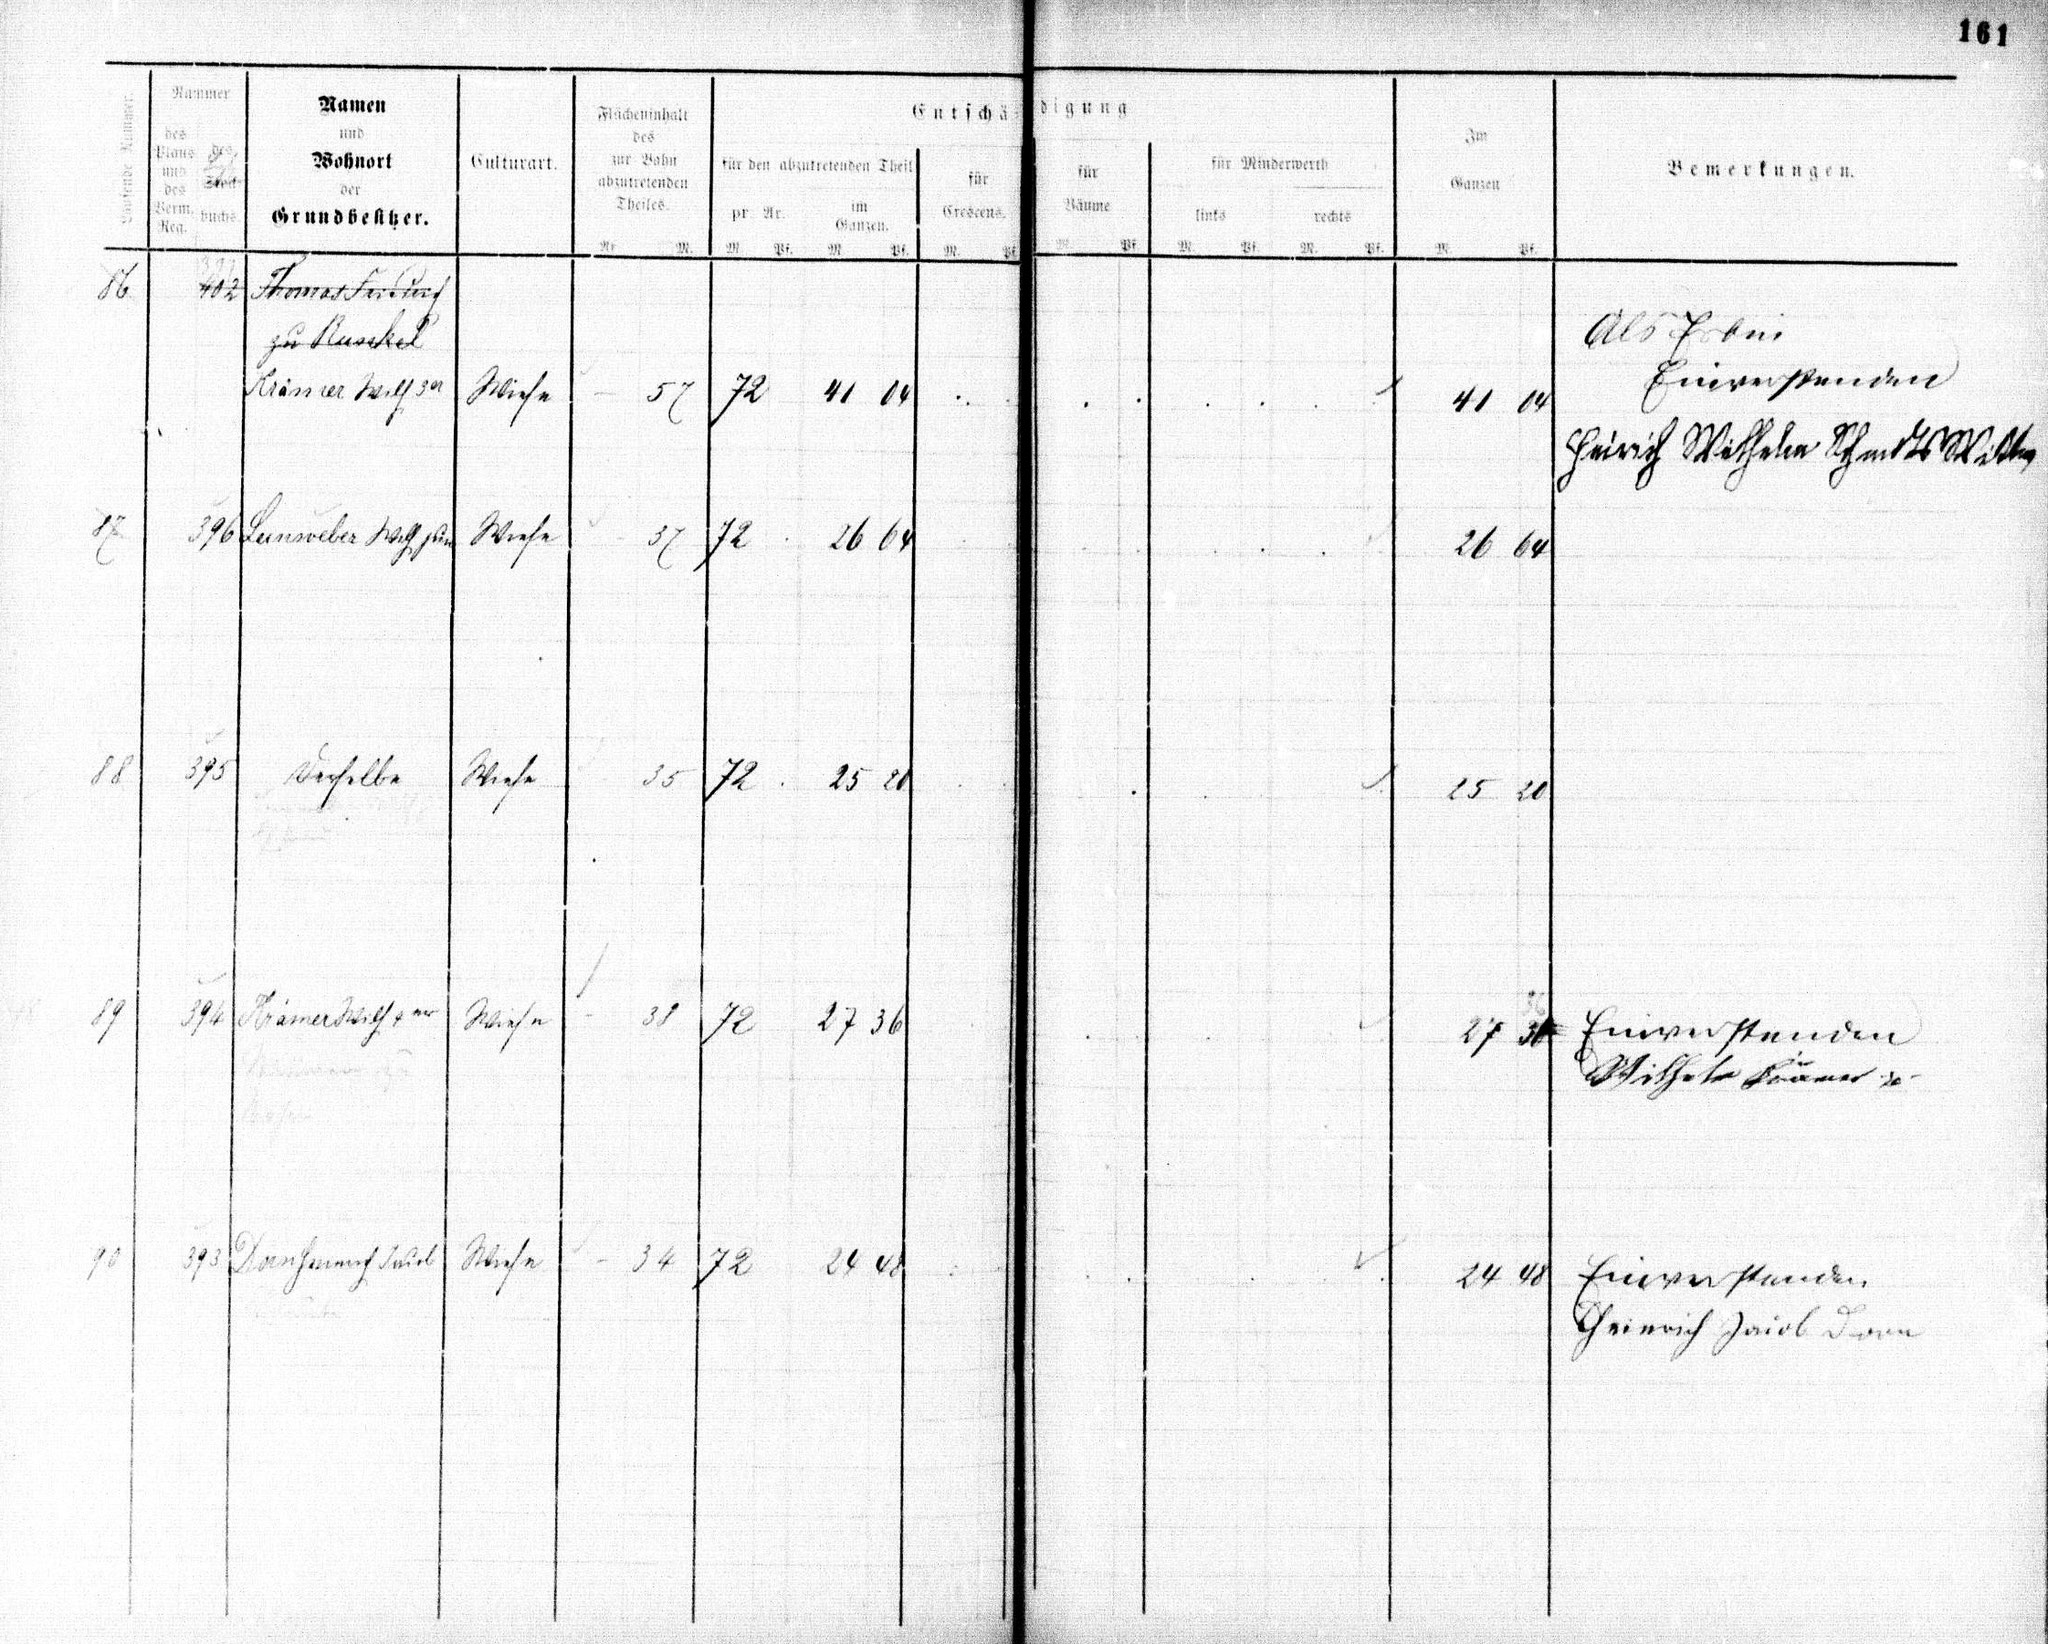 161
Laufende Nummer.
Nummer
des Plans und des Verm. Reg.
des
buchs.
Namen
und
Wohnort
der
Grundbesitzer.
Culturart.
Flächeninhalt
des
zur Bahn
abzutretenden
Theiles.
Ar. M.
Entschädigung
für den abzutretenden Theil
pr. Ar.
M. Pf.
im
Ganzen.
M. Pf.
für
Crescens.
M. Pf.
für
Bäume
M. Pf.
für Minderwerth
links
rechts
M. Pf. M. Pf.
Im
Ganzen
M. Pf.
Bemerkungen.
86 402 Thomas Friedrich
zu Runkel
Als Erbin
Krämer Wilh 3er Wiese – 57 72 41 04 41 04 Einverstanden
Heinrich Wilhelm Schmidts Witwe
87 396 Leinweber Wilh jun Wiese 37 72 26 64 26 64
88 395 Derselbe Wiese 35 72 25 20 25 20
89 394 Krämer Wilh 4ter Wiese – 38 72 27 36 27 36 Einverstanden
Wilhelm Krämer
90 393 Dorn Heinrich Jacob Wiese – 34 72 24 48 24 48 Einverstanden
Heinrich Jacob Dorn